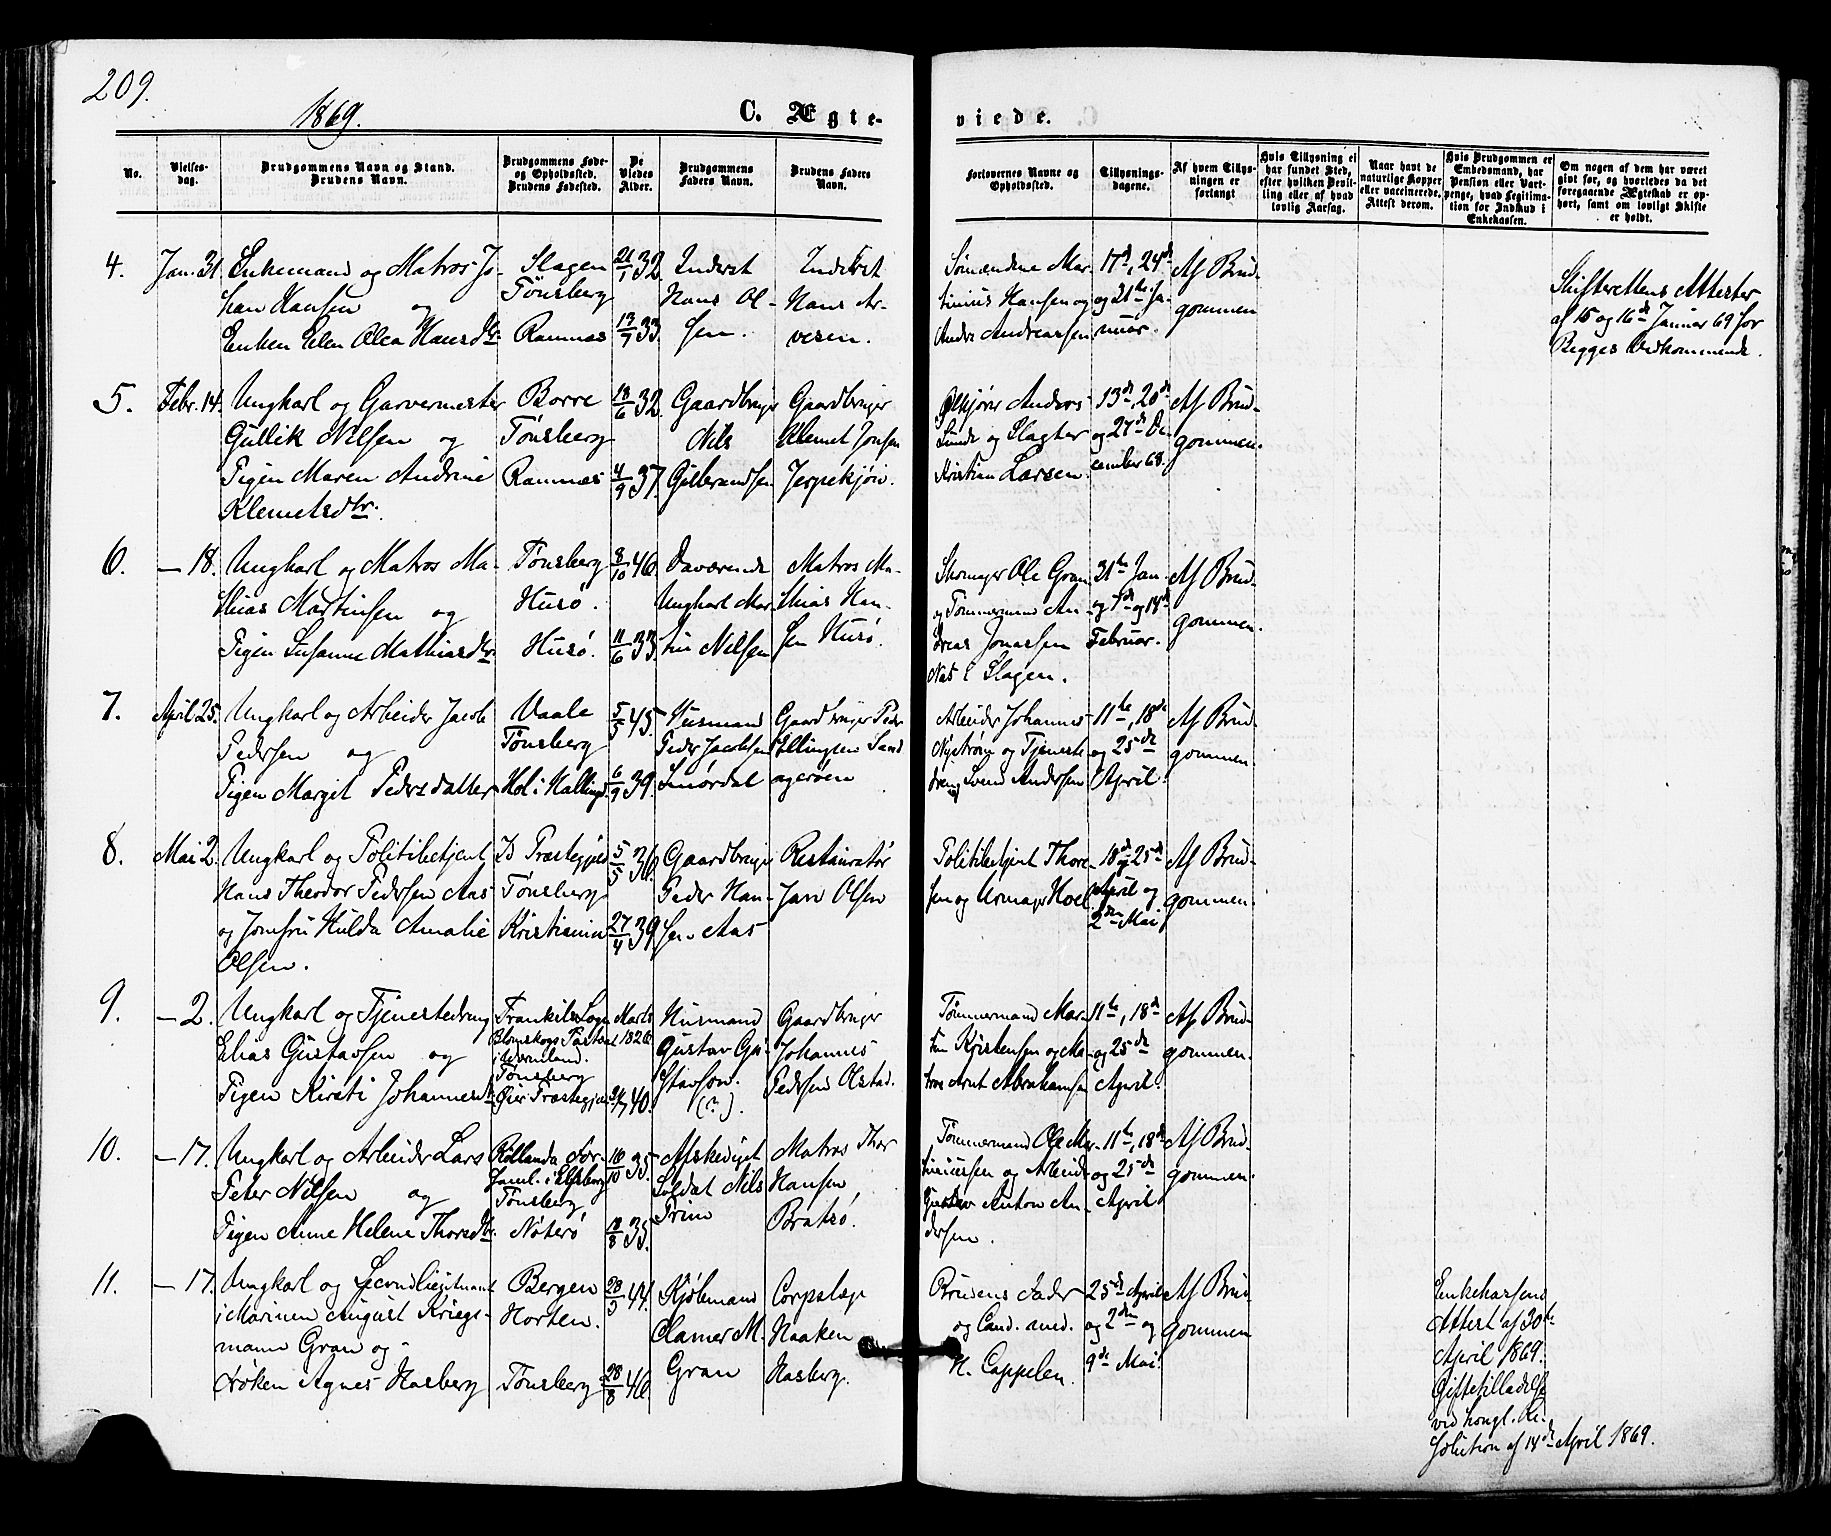 209.
1869.
C. Ægte-
viede.
No.
Vielses-
dag.
Brudgommens Navn og Stand.
Brudens Navn.
Brudgommens Føde-
og Opholdssted.
Brudens Fødested.
De
Viedes
Alder.
Brudgommens
Faders Navn.
Brudens Faders
Navn.
Forlovernes Navne og
Opholdssted.
Tillysnings-
dagene.
Af hvem Tillys-
ningen er
forlangt
Hvis Tillysning ei
har fundet Sted,
efter hvilken Bevil-
ling eller af hvad
lovlig Aarsag.
Naar havt de
naturlige Kopper
eller vaccinerede.
Attest derom.
Hvis Brudgommen er
Embedsmand, har
Pension eller Vart-
penge, hvad Legitima-
tion for Indskud i
Enkekassen.
Om nogen af dem har været
gift før, og hvorledes da det
foregaaende Ægteskab er op-
hørt, samt om lovligt Skifte
er holdt.
4.
Jan. 31.
Enkemand og Matros Jo-
han Hansen og
Enken Elen Olea Hansdtr.
Slagen
Tønsberg
Ramnæs
21/1 32
13/7 33
Inderst
Hans Ol-
sen.
Inderst
Hans Ar-
vesen.
Sømændene Mar-
tinius Hansen og
Andr. Andreassen
17de, 24de
og 31te Ja-
nuar.
Af Brud-
gommen
Skifterettens Attester
af 15 og 16de Januar 69 for
Begges Vedkommende.
5.
Febr. 14.
Ungkarl og Garvermester
Gullik Nilsen og
Pigen Maren Andrine
Klemetsdtr.
Borre
Tønsberg
Ramnæs
18/6 32
4/9 37.
Gaardbruger
Nils
Gulbrandsen
Gaardbruger
Klemet Jonsen
Jerpekjøn.
Anders
Sunde og Slagter
Kristian Larsen.
13de, 20de
og 27de De-
cember 68.
Af Brud-
gommen.
6.
— 18.
Ungkarl og Matros Ma-
thias Martinsen og
Pigen Susanne Mathiasdtr
Tønsberg
Husø.
Husø.
8/10 46.
11/6 33.
Daværende
Ungkarl Mar-
tin Nilsen
Matros Ma-
thias Han-
sen Husø.
Skomager Ole Gran
og Tømmermand An-
dreas Jonassen
Næs i Slagen.
31te Jan.
og 7de og 14de
Februar.
Af Brud-
gommen.
7.
April 25.
Ungkarl og Arbeider Jacob
Pedersen og
Pigen Margit Pedersdatter
Vaale
Tønsberg
Hol i Hallingd.
5/5 45.
6/9 39.
Husmand
Peder Jacobsen
Smørdal
Gaardbruger Peder
Ellingsen Sand
agerøen
Arbeider Johannes
Nystrøm og Tjeneste
dreng Svend Andersen
11te, 18de
og 25de
April.
Af Brud-
gommen.
8.
Mai 2.
Ungkarl og Politibetjent
Hans Theodor Pedersen Aas
og Jomfru Hulda Amalie
Olsen.
Ds Præstegjeld
Tønsberg
Kristiania
5/5 36.
27/4 39
Gaardbruger
Peder Han-
sen Aas
Restauratør
Jan Olsen
Politibetjent Thore-
sen og Urmager Hoel.
18de og 25de
April og
2den Mai
Af Brud-
gommen.
9.
— 2.
Ungkarl og Tjenestedreng
Elias Gustavsen og
Pigen Kirsti Johannesdtr
Trankils Sogn
Blomskogs Pastorat
i Wermland.
Tønsberg
Øier Præstegjeld
Marts
1826.
40.
Husmand
Gustav Gu-
stavson.
(?).
Gaardbruger
Johannes
Pedersen Olstad.
Tømmermand Mar-
tin Kristensen og Ma-
tros Arnt Abrahamsen
11te, 18de
og 25de
April.
Af Brud-
gommen.
10.
— 17.
Ungkarl og Arbeider Lars
Peter Nilsen og
Pigen Anne Helene Thoresdtr.
Røllanda For-
saml. i Elfsborg
Tønsberg
Nøterø
10/10 35
18/8 35.
Afskediget
Soldat Nils
Prim
Matros Thor
Hansen
Bratsø.
Tømmermand Ole Mar-
tiniussen og Arbeider
Gustav Anton An-
dersen.
11te, 18de
og 25de
April
Af Brud-
gommen.
11.
— 17.
Ungkarl og Secondlieutnant
i Marinen August Kriegs-
mann Gran og
Frøken Agnes Hasberg
Bergen
Horten.
Tønsberg.
23/3 44.
28/8 46
Kjøbmand
Clamer M.
Gran
Corpslæge
Haaken
Hasberg.
Brudens Fader
og Cand. med.
H. Cappelen.
25de April
og 2den og
9de Mai.
Af Brud-
gommen
Enkekassens
Attest af 30te
April 1869.
Giftetilladelse
ved kongl. Re-
solution af 14de April 1869.